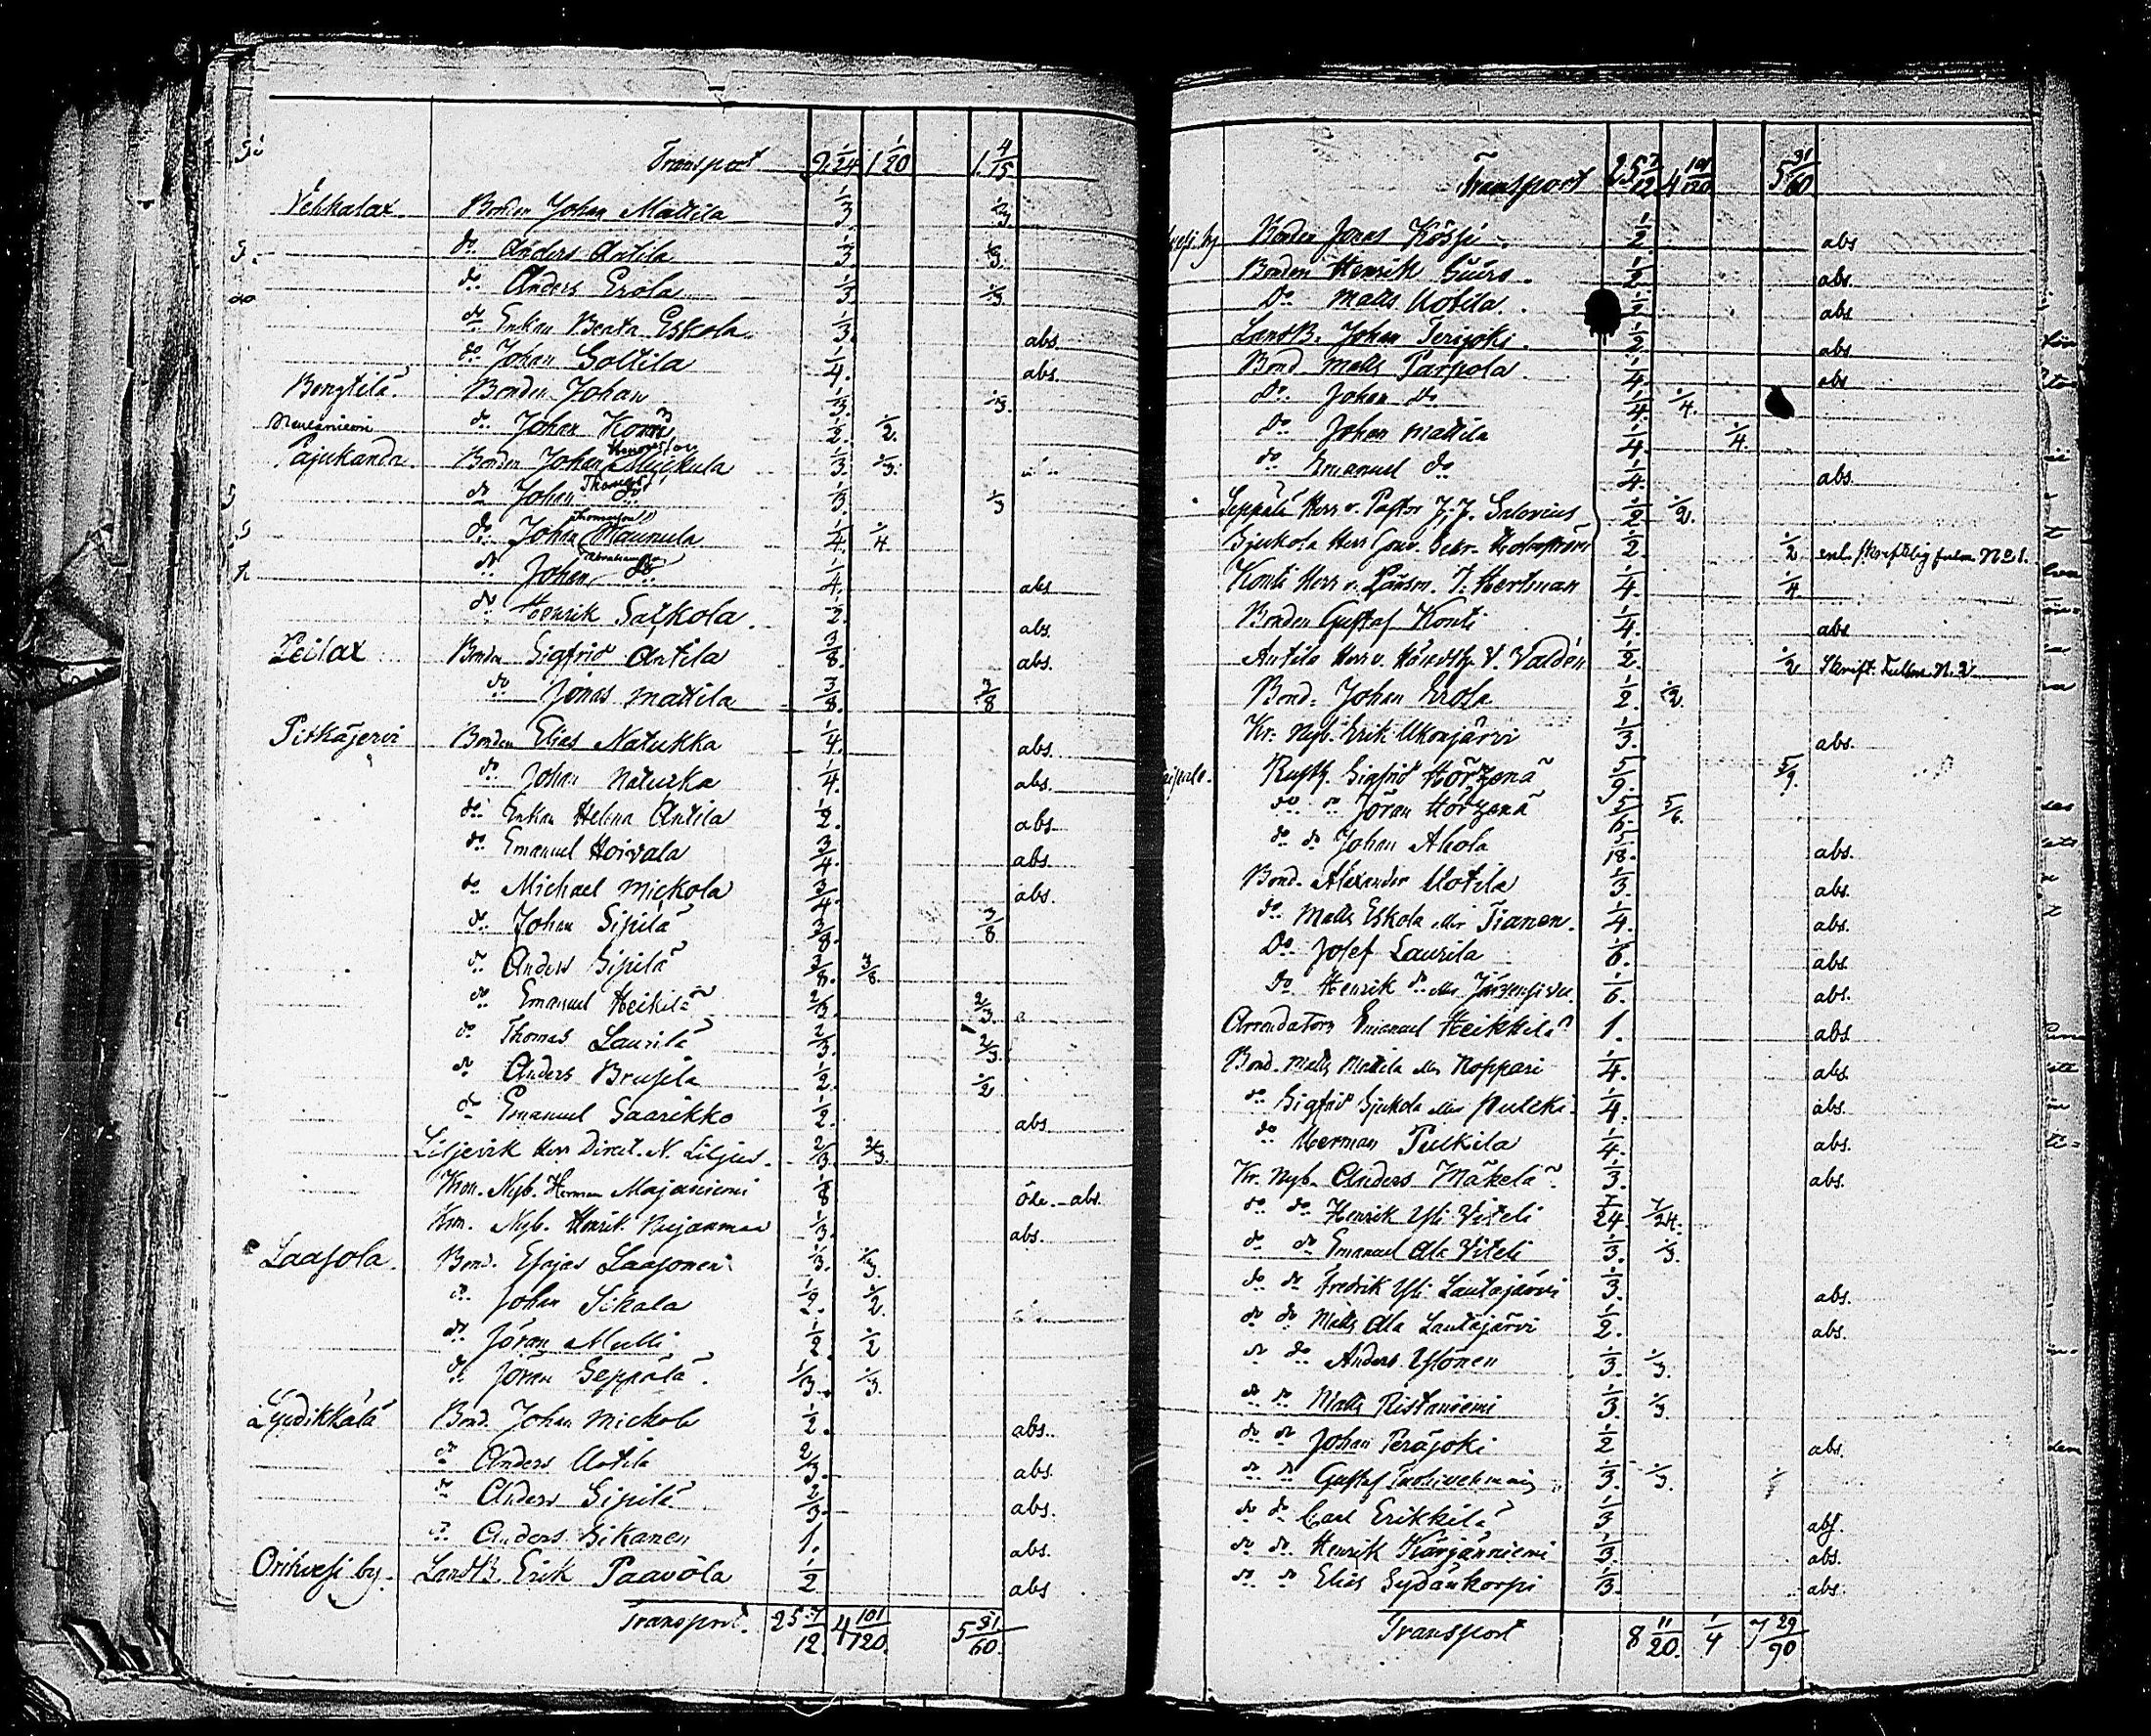 Transport 9 1/24 1 1/20 1 4/15
Vehkalax Bonden Johan Mattila 1/3 1/3
do Anders Antila 1/3 1/3
do Anders Erola 1/3 1/3
do Enkan Beata Eskola 1/3 abs.
do Johan Soltila 1/4 abs.
Bengtilä Bonden Johan 1/3 1/3
do Johan 1/2 1/2
Pajukanda Bonden Johan 1/3 1/3
do Johan Thomass. do 1/3 1/3
do Johan Thomasson Maunula 1/4 1/4
do Johan Abrahamson do 1/4 abs
do Henrik Saikola 1/2 abs.
Peilax Bonden Sigfrid Antila 3/8 abs.
do Jonas Mattila 3/8 3/8
Pitkäjervi Bonden Elias Natukka 1/4 abs.
do Johan Natukka 1/4 abs.
do Enkan Helena Antila 1/2 abs.
do Emanuel Hoivala 3/4 abs.
do Michael Mickola 3/4 abs.
do Johan Sipilä 3/8 3/8
do Anders Sipilä 3/8 3/8
do Emanuel Heikilä 2/3 2/3
do Thomas Laurila 2/3 2/3
do Anders Brusila 1/2 1/2
do Emanuel Saarikko 1/2 abs
Liljevik Herr Direct. N. Liljus 2/3 2/3
Kron. Nyb. Herman Majaniemi 1/8 öde abs.
Kron. Nyb. Henrik 1/3 abs.
Laasola Bond. Esajas Laasonen 1/3 1/3
do Johan Sikala 1/2 1/2
do Jöran Mulli 1/2 1/2
do Jöran Seppälä 1/3 1/3
Lyydikkälä Bond. Johan Mickola 1/2 abs.
do Anders Antila 2/3 abs.
do Anders Sipilä 2/3 abs.
do Anders Sikanen 1. abs.
Orihvesi by LandtB. Erik Paavola 1/2 abs
Transport 25 7/12 4 101/120 5 31/60
Transport 25 7/12 4 101/120 5 31/60
by Bonden Jonas Köppi 1/2 abs
Bonden Henrik Suira 1/2 abs.
Do Matts Uotila 1/2 abs
LandtB. Johan Terijoki 1/2 abs
Bond Matts Parpola 1/4 abs
Do Johan do 1/4 1/4
Do Johan Mattila 1/4 1/4
do Emanuel do 1/4 abs.
Seppälä Herr v. Pastor J. J. Salovius 1/2 1/2
Sjukola Herr Guv. Sekr. Holmström 1/2 1/2 enl. skriftelig fulm. No 1.
Konti Herr v. Länsm. J. Hertman 1/4 1/4
Bonden Gustaf Konti 1/4 abs
Antila Herr v. Häradsh. V. Valdén 1/2 1/2 Skrift. Fullm. N. 2
Bond. Johan Erola 1/2 1/2
Kr. Nyb. Erik Ukonjärvi 1/3 abs.
Rusth. Sigfrid Hörhänä 5/9 5/9
do do Jöran Hörhänä 5/6 5/6
do do Johan Ahola 5/18 abs.
Bond. Alexander Uotila 1/3 abs.
do Matts Eskola eller Tianen 1/4 abs.
Do Josef Laurila 1/6 abs.
Do Henrik do eller 1/6 abs.
Arrendatorn Emanuel Heikkilä 1. abs
Bond. Matts Mattila eller Noppari 1/4 abs.
do Sigfrid Sjukola eller Pulcki 1/4 abs.
do Herman Pulkila 1/4 abs.
Kr. Nyb. Anders Mäkelä 1/3 abs.
do do Henrik Yli Viteli 7/24 7/24
do do Emanuel Ala Viteli 1/3 1/3
do do Fredrik Yli Lautajärvi 1/3 abs.
do do Matts Ala Lautajärvi 1/2 abs.
do do Anders Ylönen 1/3 1/3
do do Matts Ristaniemi 1/3 1/3
do do Johan Peräjoki 1/2 abs.
do do Gustaf 1/3 1/3
do do Carl Erikkilä 1/3 abs.
do do Henrik Kärjänniemi 1/3 abs.
do do Elias Sydänkorpi 1/3 abs.
Transport 8 11/20 1/4 7 29/90